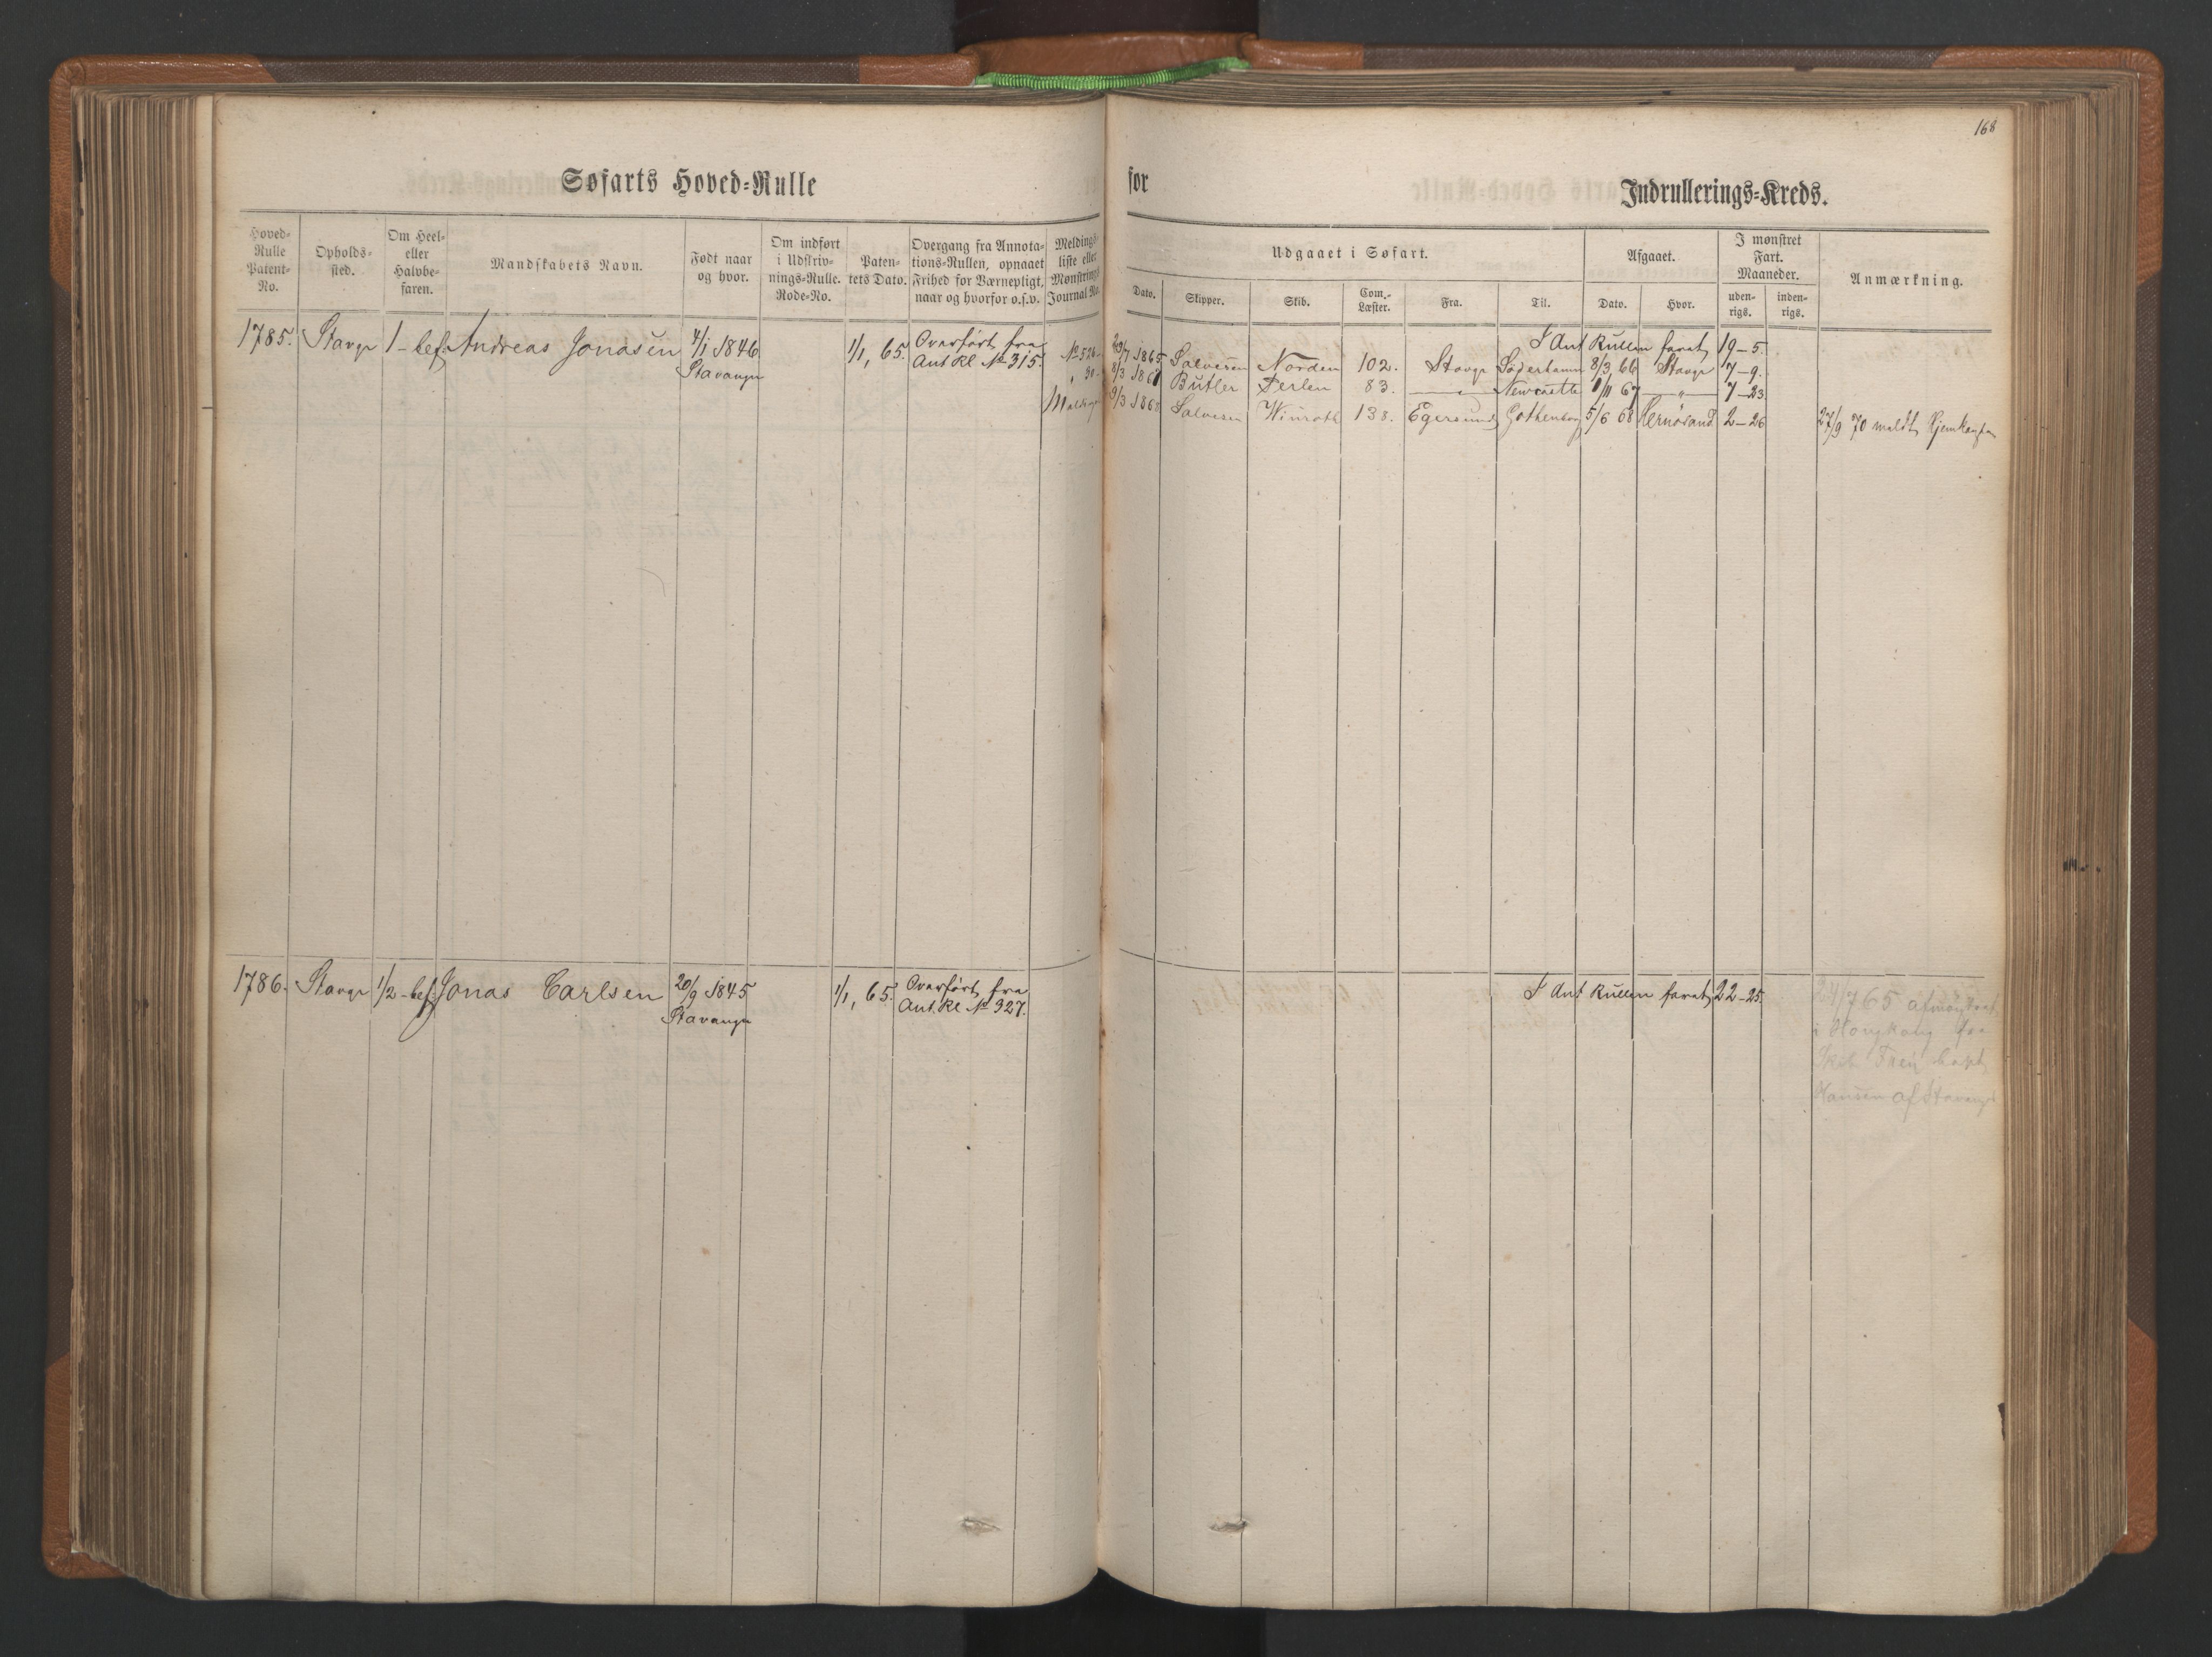 168
Søfarts Hoved-Rulle for Indrullerings-Kreds.
Hoved-Rulle Patent-No.
Opholds-sted.
Om Heel- eller Halvbe-faren.
Mandskabets Navn.
Født naar og hvor.
Om indført i Udskriv-nings-Rulle. Rode-No.
Paten-tets Dato.
Overgang fra Annota-tions-Rullen, opnaaet Frihed for Værnepligt, naar og hvorfor o.s.v.
Meldings-liste eller Mønstrings Journal No.
Udgaaet i Søfart.
Dato. Skipper. Skib. Com.-Læster. Fra. Til.
Afgaaet.
Dato. Hvor.
I mønstret Fart. Maaneder.
uden-rigs. inden-rigs.
Anmærkning.
1785. Stavgr 1-bef. Andreas Jonasen 4/1 1846 1/1, 65. Overført fra
Stavanger Ant Rl No 315.
I Ant Rullen faret 19-5.
No 526 29/7 1865 Salvesen Norden 102. Stavgr Söderhamn 8/3, 66 Stavgr 17-9.
" 30 8/3 1867 Butler Perlen 83. — " — Newcastle 1/11 67 — " — 7-23
9/3 1868 Salvesen Winroth 138. Egersund Gothenborg 5/6 68 Hernøsand 2-26 27/9 70 meldt
1786. Stavgr 1/2-bef. Jonas Carlsen 20/9 1845 1/1, 65. Overført fra
Stavanger Ant. Rl No 327.
I Ant Rullen faret 22-25.
24/7 65 afmønstret
i Hongkong fra
Skib Freig Capt
Hansen af Stavanger